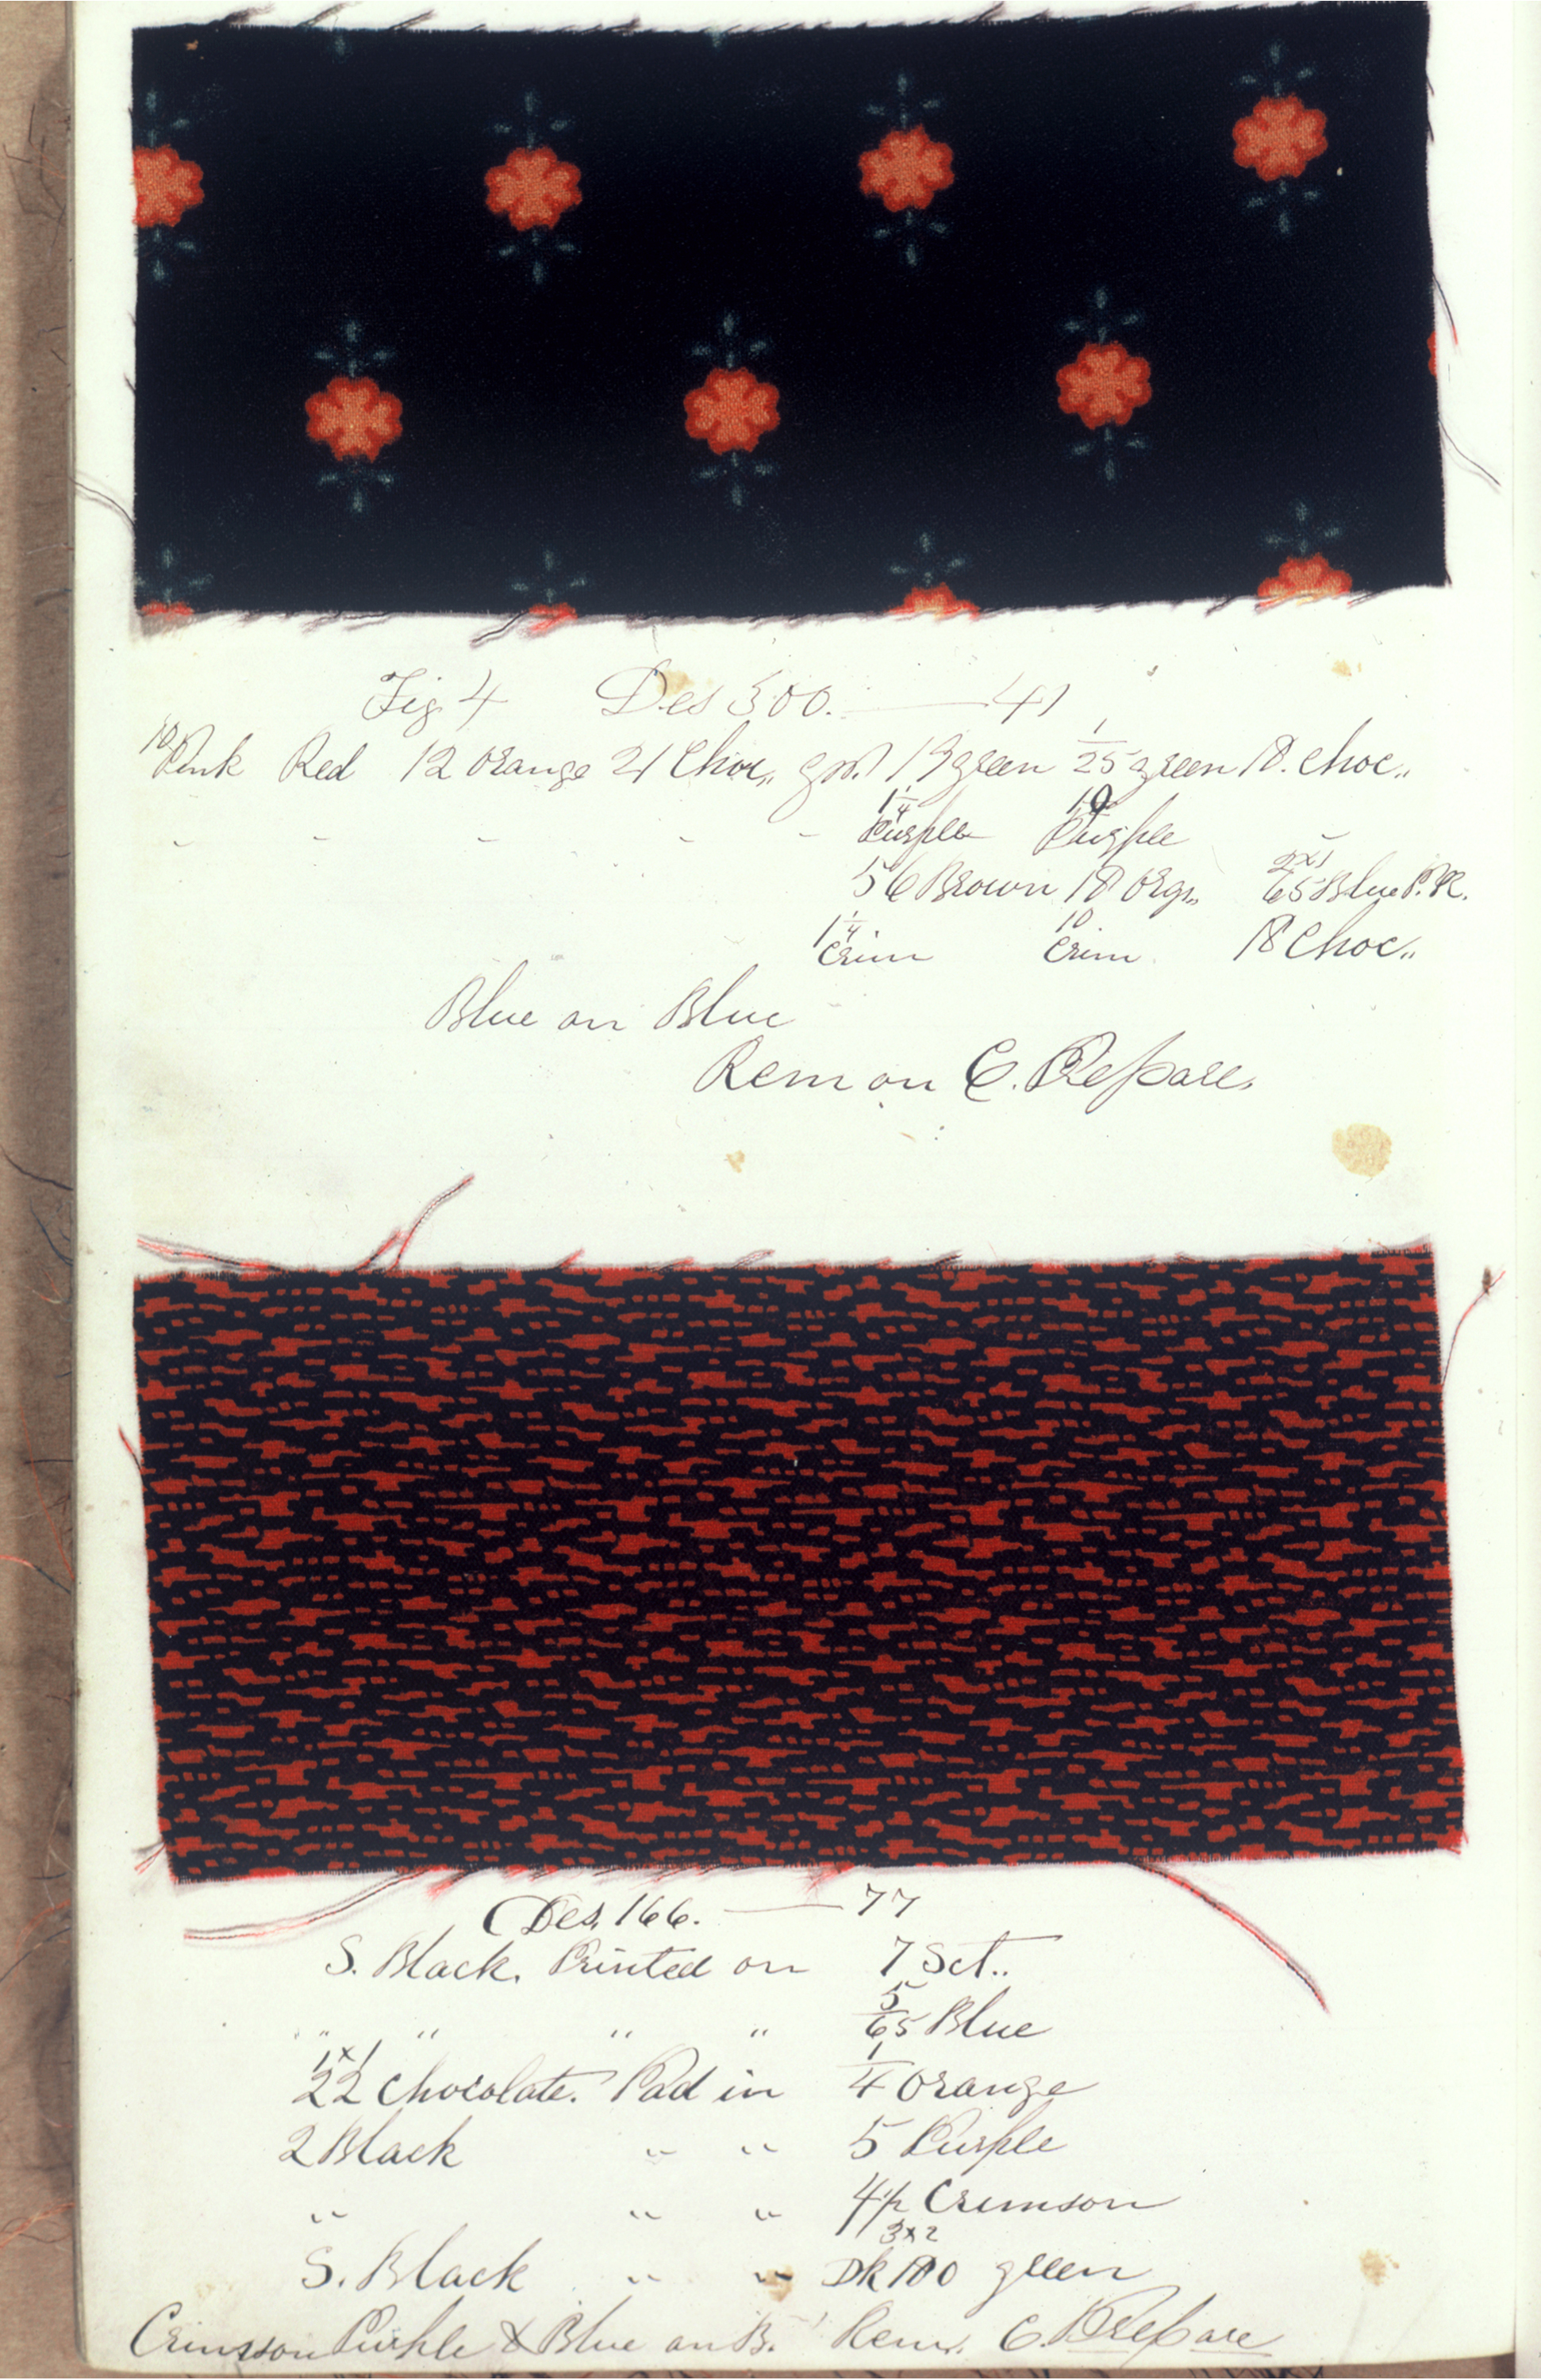 Fig 4 Des 300. — 41
10 Pink Red 12 Orange 21 Choc,, 19 green 1/25 green 18. Choc,,
" " " " " 1/4 Purple 10 Purple "
56 Brown 18 Org,, 2x1 65 Blue P.R.
1/4 Crim 10 Crim. 18 Choc,,
Blue on Blue
Rem on C. Prepare.
Des. 166. — 77
S. Black. Printed on 7 Sct..
" " " " 5/65 Blue
1x1 22 Chocolate. Pad in 1/4 Orange
2 Black " " 5 Purple
" " " Crimson
S. Black " " 3x2 Dk 100 green
Crimsson Purple & Blue on B. Rem. C. Prepare